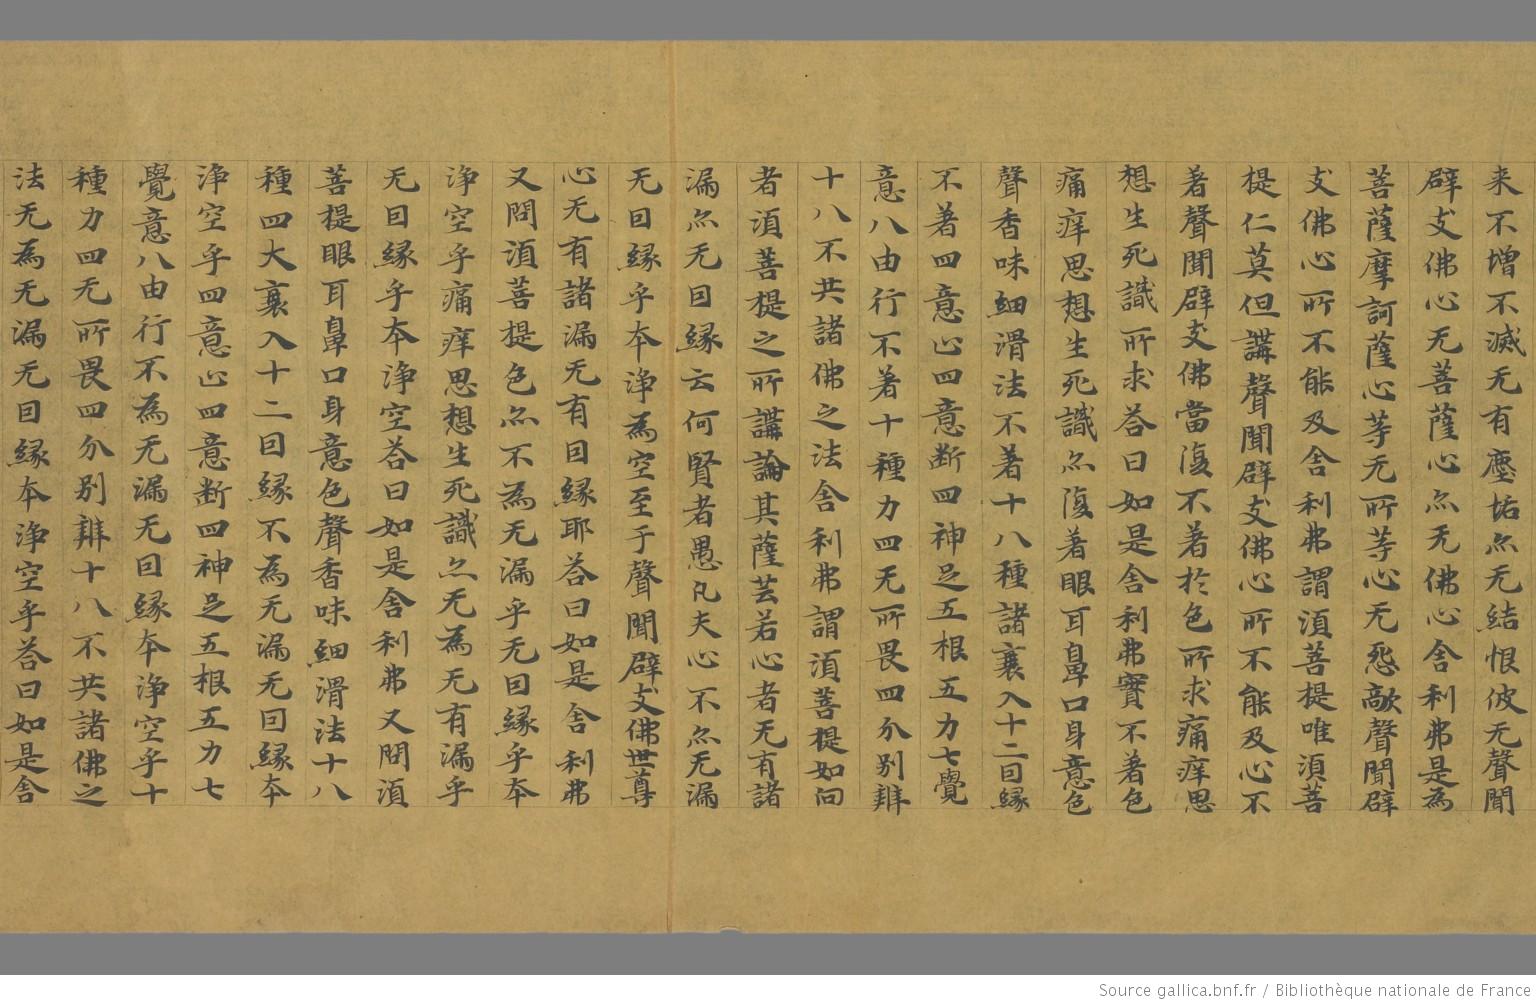 来不增不滅无有塵垢亦无結恨彼无聲聞
辟支佛心无菩薩心亦无佛心舍利弗是為
菩薩摩訶薩心等无所等心无悕敵聲聞辟
支佛心所不能及舍利弗謂須菩提唯須菩
提仁莫但講聲聞辟支佛心所不能及心不
著聲聞辟支佛當復不著於色所求痛痒思
想生死識所求荅曰如是舍利弗實不著色
痛痒思想生死識亦復著眼耳鼻口身意色
聲香味細滑法不著十八種諸衰入十二因緣
不著四意止四意断四神足五根五力七覺
意八由行不著十種力四无所畏四分别辯
十八不共諸佛之法舍利弗謂須菩提如向
者須菩提之所講論其薩芸若心者无有諸
漏亦无因緣云何賢者愚凡夫心不亦无漏
无因緣乎本淨為空至于聲聞辟支佛世尊
心无有諸漏无有因緣耶荅曰如是舍利弗
又問須菩提色亦不為无漏乎无因緣乎本
淨空乎痛痒思想生死識亦无為无有漏乎
无因緣乎本淨空荅曰如是舍利弗又問須
菩提眼耳鼻口身意色聲香味細滑法十八
種四大衰入十二因緣不為无漏无因緣本
淨空乎四意止四意断四神足五根五力七
覺意八由行不為无漏无因緣本淨空乎十
種力四无所畏四分别辯十八不共諸佛之
法无為无漏无因緣本淨空乎荅曰如是舍
Source gallica.bnf.fr / Bibliothèque nationale de France